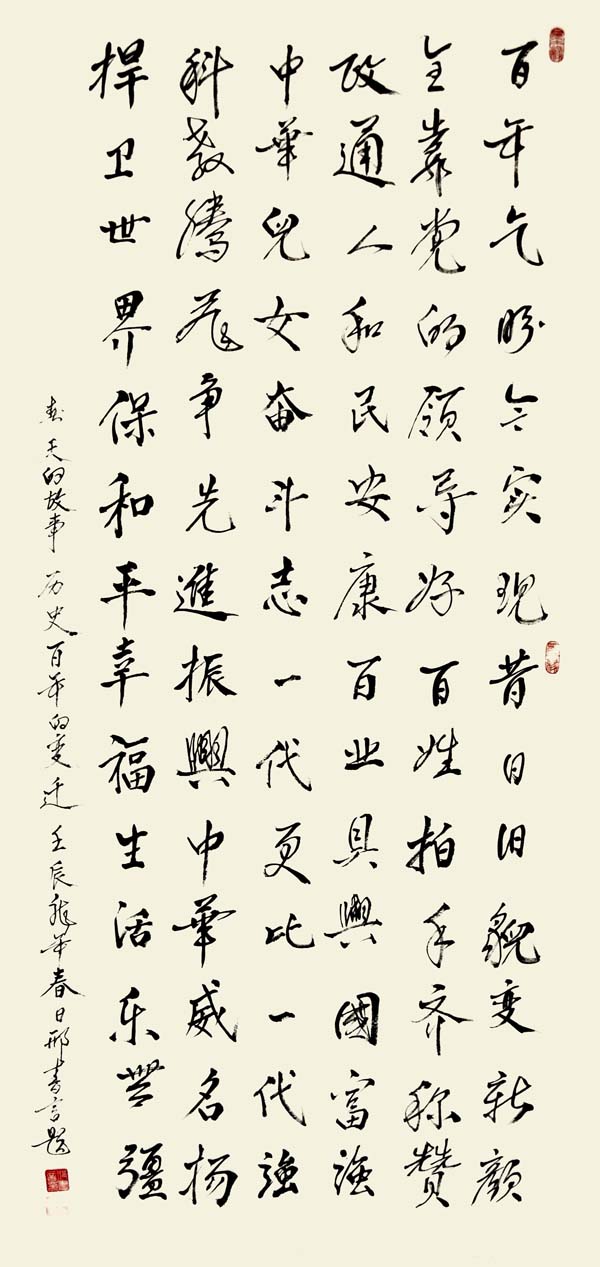 百年乞盼今实现昔日旧貌变新颜
全靠党的領导好百姓拍手齐称赞
政通人和民安康百业具興國富強
中華兒女奋斗志一代更比一代強
科教騰飛争先進振興中華威名扬
捍卫世界保和平幸福生活乐無疆
春天的故事 历史百年的变迁 壬辰龍年春日邢书言題